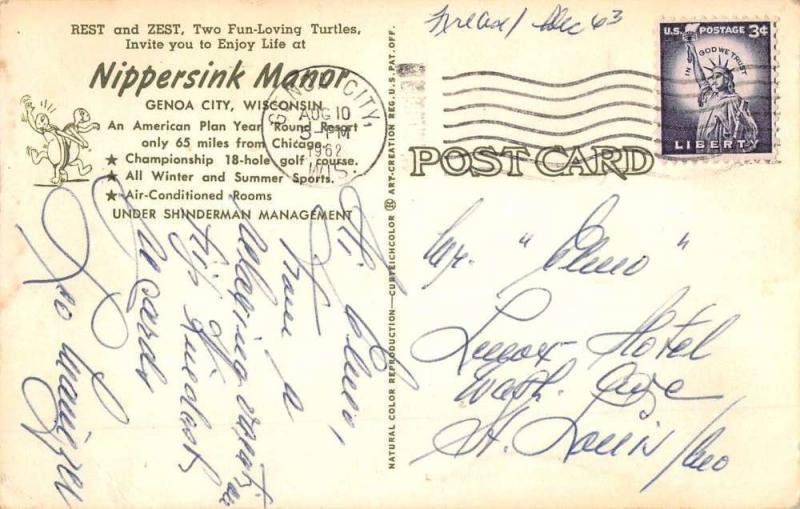 REST and ZEST, Two Fun-Loving Turtles,
Invite you to Enjoy Life at
Nippersink Manor
GENOA CITY, WISCONSIN
An American Plan Year Round Resort
only 65 miles from Chicago.
★ Championship 18-hole golf course.
★ All Winter and Summer Sports.
★ Air-Conditioned Rooms
UNDER SHINDERMAN MANAGEMENT
GENOA CITY,
AUG 10
1962
WIS.
NATURAL COLOR REPRODUCTION—CURTEICHCOLOR ® ART-CREATION REG. U.S. PAT. OFF.
Dec 63
U.S. POSTAGE 3¢
IN GOD WE TRUST
LIBERTY
POST CARD
Mr. "Elmo"
Lenox Hotel
Wash. Ave
St. Louis / Mo
Hi Elmo,
from a
relaxing vacation
trip
Regards
Leo